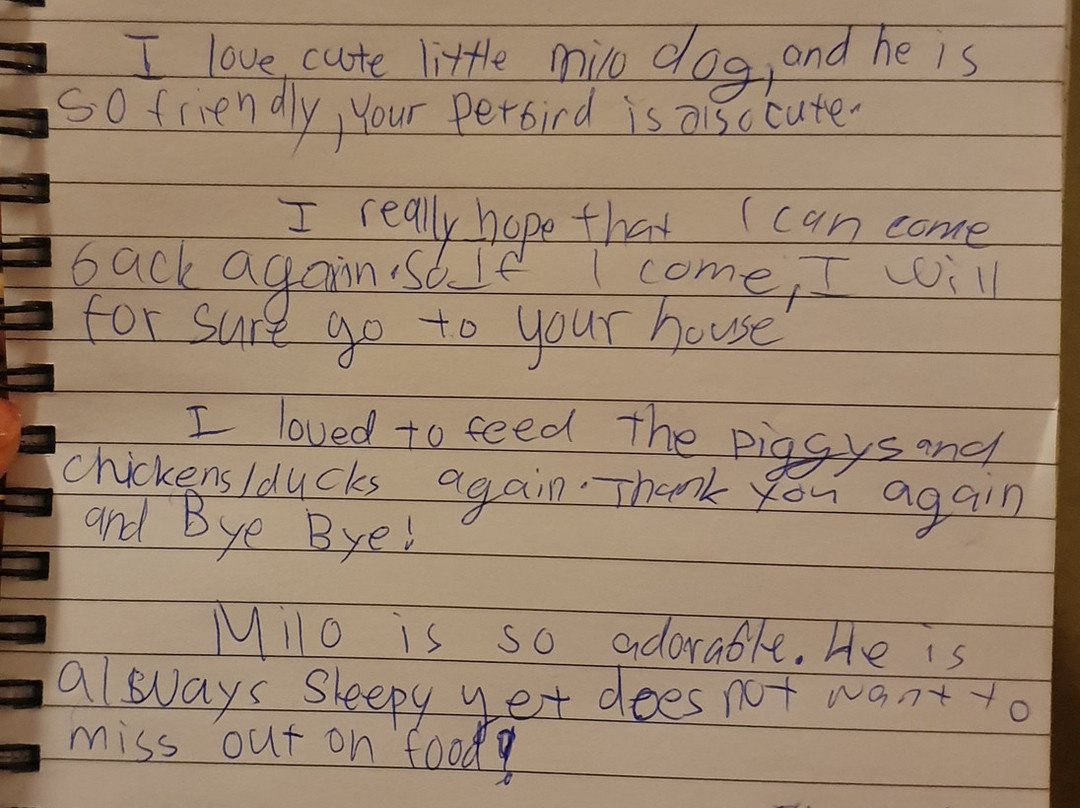 I love cute little milo dog, and he is
so friendly, your petbird is also cute.
I really hope that I can come
back again. So If I come, I will
for sure go to your house
I loved to feed the piggys and
chickens/ducks again. Thank you again
and Bye Bye!
Milo is so adorable. He is
always sleepy yet does not want to
miss out on food!